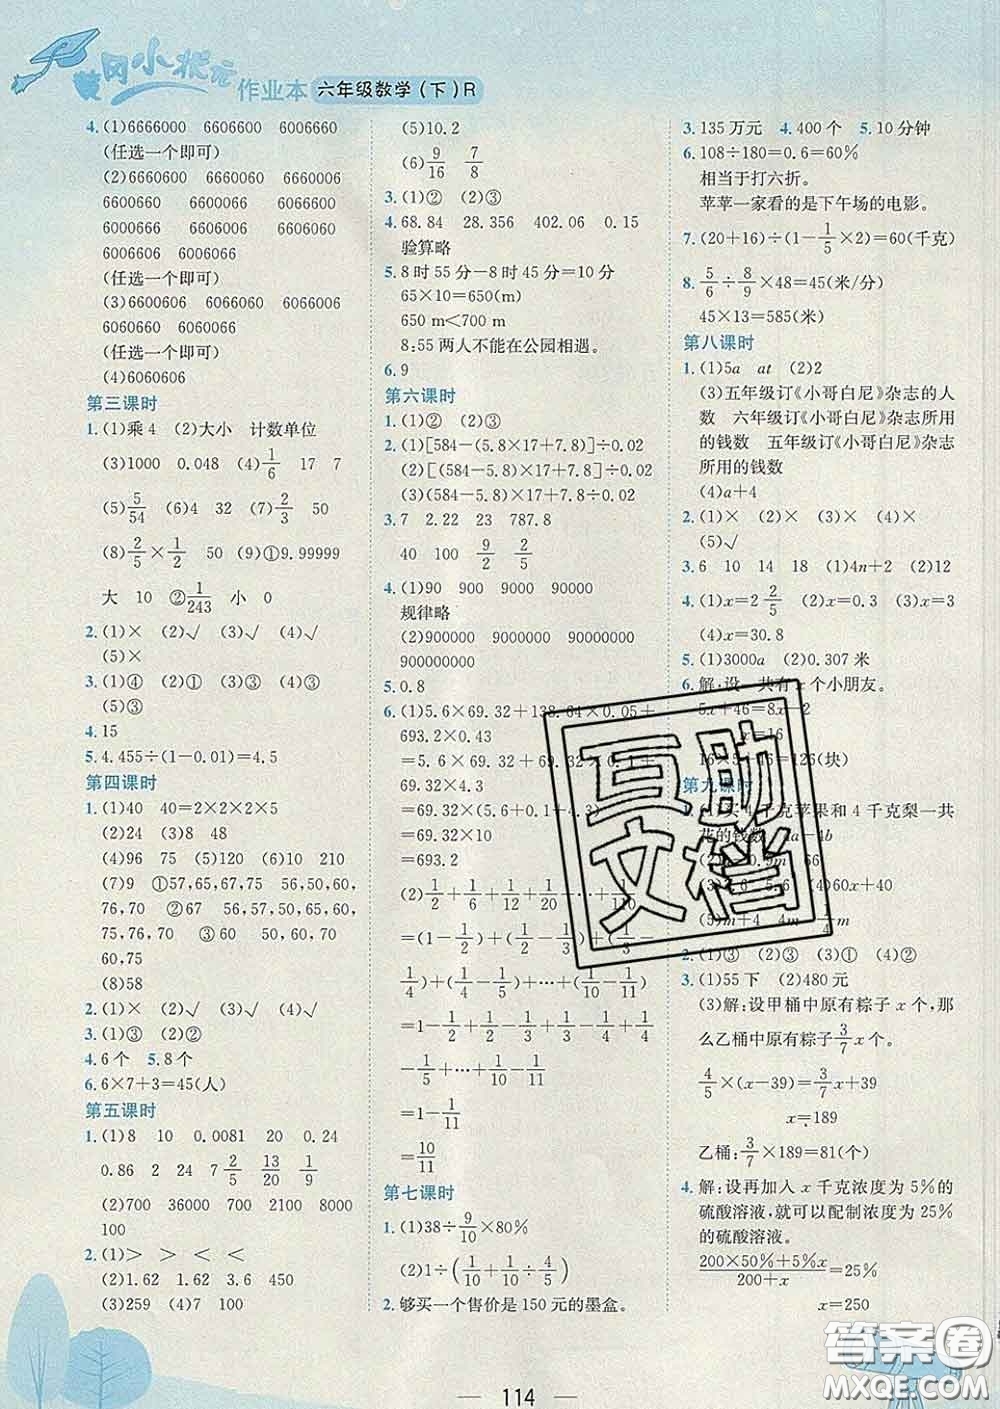 黄冈小状元 作业本 六年级数学(下)R
4.(1)6666000 6606600 6006660
(任选一个即可)
(2)6660600 6660060 6660006
6600660 6600066 6006066
6000666 6006606 6060066
6066006 6606006
(任选一个即可)
(3)6600606 6060660 6066060
6060660 6606066
(任选一个即可)
(4)6060606
第三课时
1.(1)乘4 (2)大小 计数单位
(3)1000 0.048 (4)1/6 17 7
(5)5/54 (6)4 32 (7)2/3 50
(8)2/5×1/2 50 (9)①9.99999
大 10 ②1/243 小 0
2.(1)× (2)√ (3)√ (4)√
(5)×
3.(1)④ (2)① (3)③ (4)①
(5)③
4.15
5.4.455÷(1-0.01)=4.5
第四课时
1.(1)40 40=2×2×2×5
(2)24 (3)8 48
(4)96 75 (5)120 (6)10 210
(7)9 ①57,65,56,75,67,60,
76,70 ②67 56,57,50,65,60,
75,76,70 ③60 50,56,57,65,
60,75
(8)58
2.(1)× (2)√ (3)√ (4)√
3.(1)③ (2)②
4.6个 5.8个
6.6×7+3=45(人)
第五课时
1.(1)8 10 0.0081 20 0.24
0.86 2 24 7 2/5 13/20 1/9
(2)700 36000 200 8000
100
2.(1)> > < <
(2)1.62 1.62 1.62 3.24
(3)259 (4)7 100
(5)10.2
(6)9/16 7/8
3.(1)② (2)③
4.68.84 28.356 402.06 0.15
验算略
5.8时55分-8时45分=10分
65×10=650(m)
650 m<700 m
8:55两人不能在公园相遇。
6.9
第六课时
1.(1)② (2)③
2.(1)[584-(5.8×17+7.8)]÷0.02
(2)[(584-5.8)×17+7.8]÷0.02
(3)(584-5.8)×17+7.8÷0.02
3.7 2.22 23 787.8
40 100 9/2 2/5
4.(1)90 900 9000 90000
规律略
(2)900000 9000000 90000000
900000000
5.0.8
6.(1)5.6×69.32+138.64×0.05+
693.2×0.43
=5.6×69.32+69.32×0.1+
69.32×4.3
=69.32×(5.6+0.1+4.3)
=69.32×10
=693.2
(2)1/2+1/6+1/12+1/20+…+1/110
=(1-1/2)+(1/2-1/3)+(1/3-
1/4)+(1/4-1/5)+…+(1/10-1/11)
=1-1/2+1/2-1/3+1/3-1/4+1/4-
1/5+…+1/10-1/11
=1-1/11
=10/11
第七课时
1.(1)38÷9/10×80%
(2)1÷(1/10+1/10÷4/5)
2.够买一个售价是150元的墨盒。
3.135万元 4.400个 5.10分钟
6.108÷180=0.6=60%
相当于打六折。
苹苹一家看的是下午场的电影。
7.(20+16)÷(1-1/5×2)=60(千克)
8.5/6÷8/9×48=45(米/分)
45×13=585(米)
第八课时
1.(1)5a at (2)2
(3)五年级订《小哥白尼》杂志的人
数 六年级订《小哥白尼》杂志所用
的钱数 五年级订《小哥白尼》杂志
所用的钱数
(4)a+4
2.(1)× (2)× (3)√ (4)×
(5)√
3.6 10 14 18 (1)4n+2 (2)12
4.(1)x=2 2/5 (2)x=0.3 (3)x=13
(4)x=30.8
5.(1)3000a (2)0.307米
6.解:设一共有x个小朋友。
5x+46=8x-2
x=16
16×5+46=126(块)
第九课时
1.(1)买4千克苹果和4千克梨一共
花的钱数 4a-4b
(2) 0.9m 66
(3)2.6 5.6 (4)60x+40
(5)m+4 4m m
2.(1)③ (2)③ (3)① (4)②
3.(1)55 下 (2)480元
(3)解:设甲桶中原有粽子x个,那
么乙桶中原有粽子3/7x个。
4/5×(x-39)=3/7x+39
x=189
乙桶:3/7×189=81(个)
4.解:设再加入x千克浓度为5%的
硫酸溶液,就可以配制浓度为25%
的硫酸溶液。
(200×50%+5%x)/(200+x)=25%
x=250
互助
文档
答案圈
MXQE.COM
114